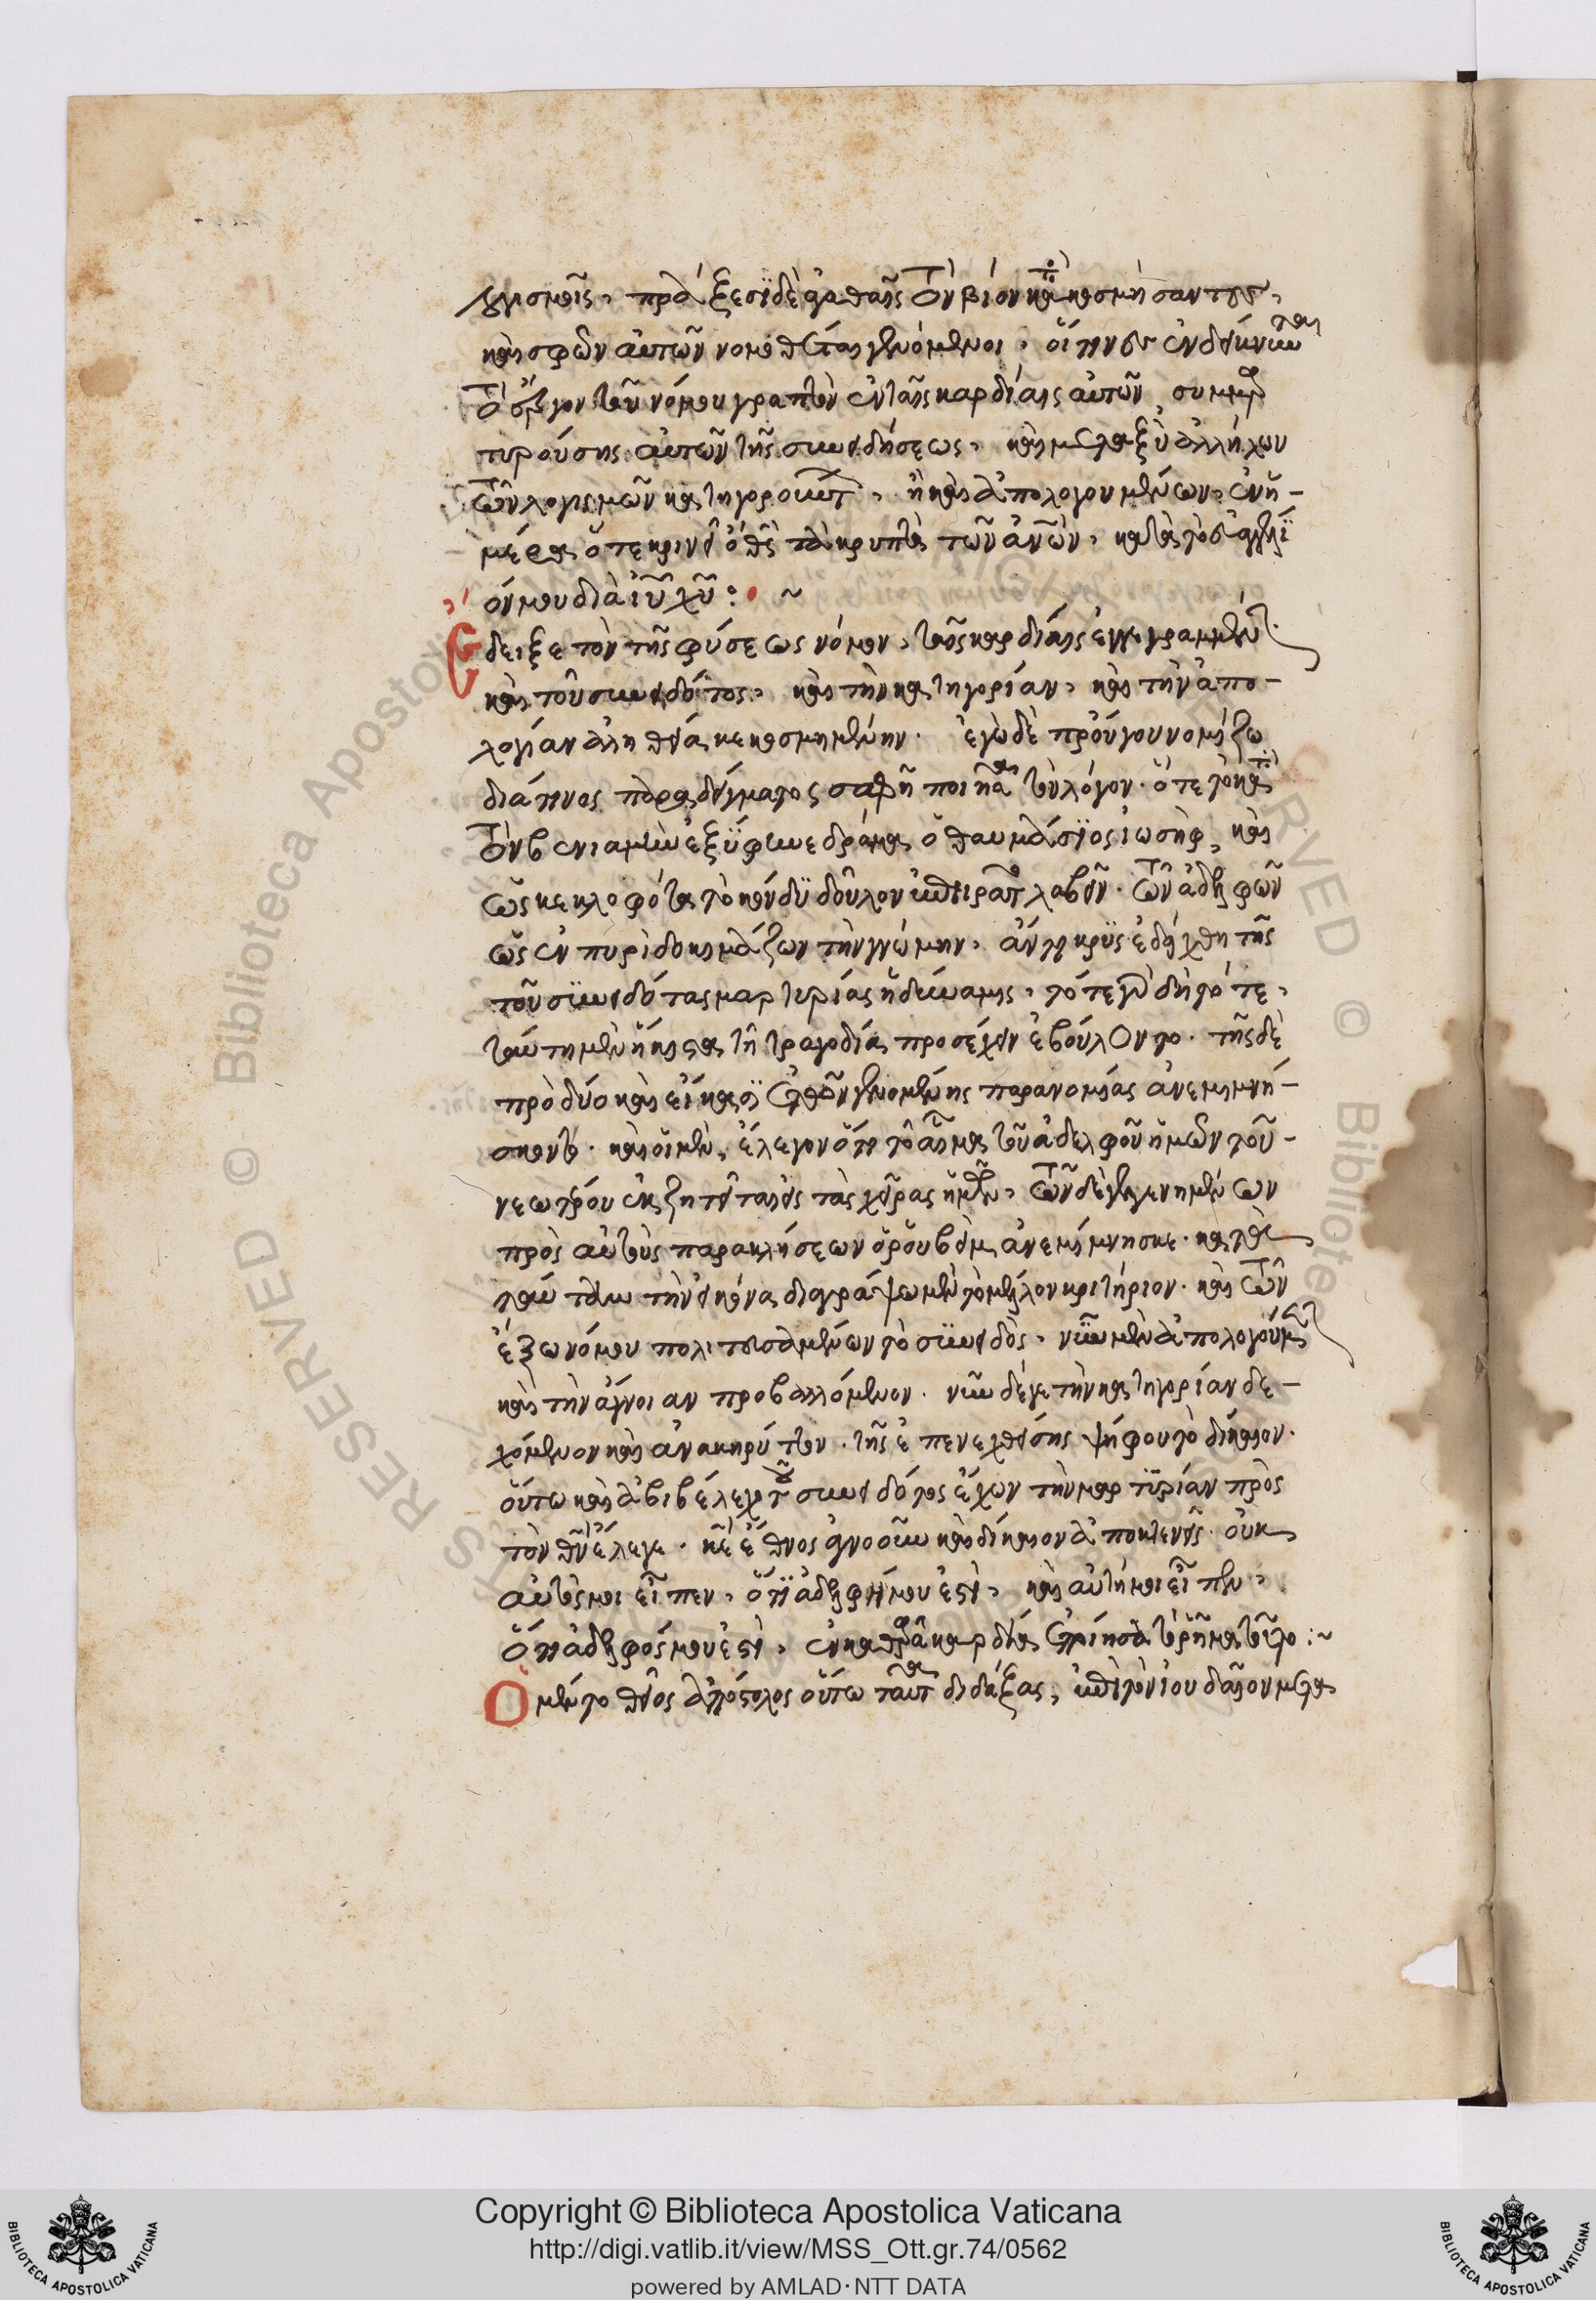 λογισμοῖς, πράξεσι δὲ ἀγαθαῖς τὸν βίον κατακοσμήσαντες,
καὶ σφῶν αὐτῶν νομοθέται γενόμενοι, οἵτινες ἐνδείκνυνται
τὸ ἔργον τοῦ νόμου γραπτὸν ἐν ταῖς καρδίαις αὐτῶν, συμμαρ
τυρούσης αὐτῶν τῆς συνειδήσεως, καὶ μεταξὺ ἀλλήλων
τῶν λογισμῶν κατηγορούντων, ἢ καὶ ἀπολογουμένων, ἐν ἡ-
μέρα ὅτε κρινεῖ ὁ θς τὰ κρυπτὰ τῶν ἀνων, κατὰ τὸ εὐαγγέλι
όν μου διὰ ιυ χυ:
Ἔδειξε τὸν τῆς φύσεως νόμον, ταῖς καρδίαις ἐγγεγραμμένον
καὶ τοῦ συνειδότος, καὶ τὴν κατηγορίαν, καὶ τὴν ἀπο-
λογίαν ἀληθείᾳ κεκοσμημένην. ἐγὼ δὲ προὔργου νομίζω
διά τινος παραδείγματος σαφῆ ποιῆσαι τὸν λόγον. ὅτε τὸ κατὰ
τὸν βενιαμὶν ἐξύφαινε δράμα ὁ θαυμάσιος ἰωσὴφ, καὶ
ὡς κεκλοφότα τὸ κόνδυ δοῦλον ἐπειρᾶτο λαβεῖν. τῶν ἀδελφῶν
ὡς ἐν πυρὶ δοκιμάζων τὴν γνώμην, ἄντικρυς ἐδείχθη τῆς
τοῦ συνειδότος μαρτυρίας ἡ δύναμις, τότε γὰρ δὴ τότε,
ταύτη μὲν ἥκιστα τῆ τραγωδία προσέχειν ἐβούλοντο. τῆς δὲ
πρὸ δύο καὶ εἴκοσι ἐτῶν γενομένης παρανομίας ἀνεμιμνή-
σκοντο. καὶ οἱ μὲν, ἔλεγον ὅτι τὸ αἷμα τοῦ ἀδελφοῦ ἡμῶν τοῦ
νεωτέρου ἐκζητεῖται εἰς τὰς χεῖρας ἡμῶν, τῶν δὲ γεγενημένων
πρὸς αὐτοὺς παρακλήσεων ὁ ῥουβὶμ ἀνεμίμνησκε. κατὰ
ταύτην τὴν εἰκόνα διαγράψωμεν τὸ μέλλον κριτήριον. καὶ τῶν
ἔξω νόμου πολιτευσαμένων τὸ συνειδὸς, νῦν μὲν ἀπολογούμενον
καὶ τὴν ἄγνοιαν προβαλλόμενον. νῦν δέ γε τὴν κατηγορίαν δε-
χόμενον καὶ ἀνακηρύττον. τῆς ἐπενεχθείσης ψήφου τὸ δίκαιον.
οὕτω καὶ ἀβιβέλεχ τοῦ συνειδότος ἔχων τὴν μαρτυρίαν πρὸς
τὸν θν ἔλεγε. κε ἔθνος ἀγνοοῦν καὶ δίκαιον ἀποκτενεῖς. οὐκ
αὐτός μοι εἶπεν, ὅτι ἀδελφή μου ἐστὶ, καὶ αὐτή μοι εἶπεν,
ὅτι ἀδελφός μου ἐστὶ, ἐν καθαρᾶ καρδία ἐποίησα τὸ ῥῆμα τοῦτο:~
Ὁ μέντοι θεῖος ἀπόστολος οὕτω ταῦτα διδάξας, ἐπὶ τὸν ἰουδαῖον μετα